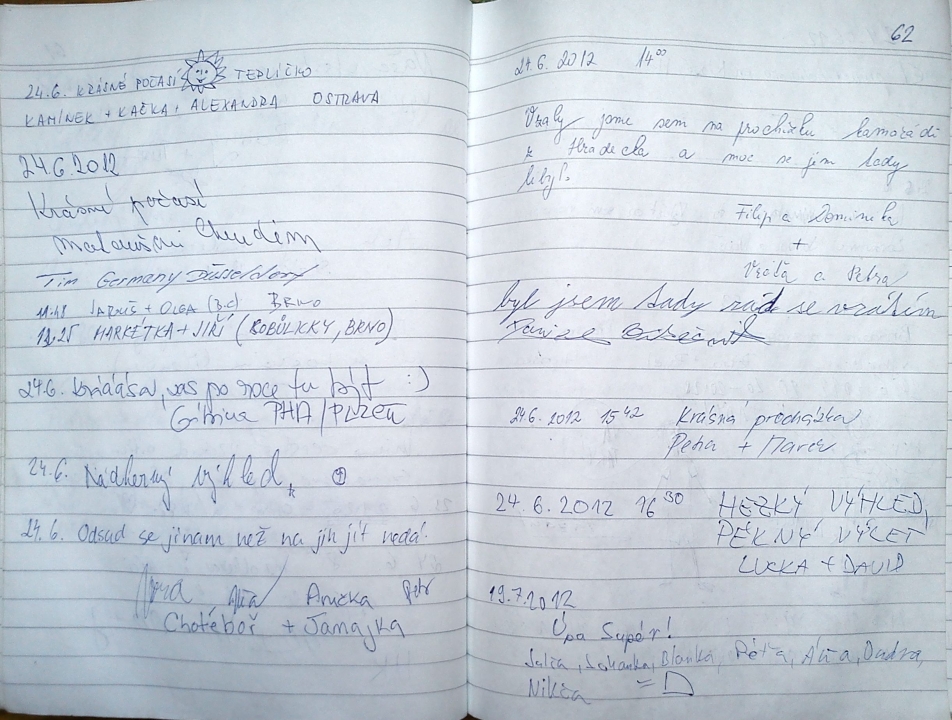 24.6. KRÁSNÉ POČASÍ TEPLÍČKO
KAMÍNEK + KAČKA + ALEXANDRA OSTRAVA
24.6.2012
Krásné počasí
Chrudim
Tim Germany Düsseldorf
11.48 + OLGA BRNO
12.25 MARKÉTKA + JIŘÍ (KOBÛLICKÝ, BRNO)
24.6. po roce tu být :)
PHA/PLZEŇ
24.6. Nádherný výhled,
24.6. Odsud se jinam než na jih jít nedá!
Anička Petr
Chotěboř + Jamajka
62
24.6.2012 14⁰⁰
Vzaly jsme sem na procházku kamarádi
z Hradecka a moc se jim tady
líbyl.
Filip a Dominika
+
Vráťa a Petra
byl jsem tady rád se vrátím
24.6.2012 15⁴² Krásná procházka
Petra + Marek
24.6.2012 16³⁰ HEZKÝ VÝHLED,
PĚKNÝ VÝLET
LUCKA + DAVID
19.7.2012
Supér!
Blanka, Péťa, Ondra,
Nikča = D